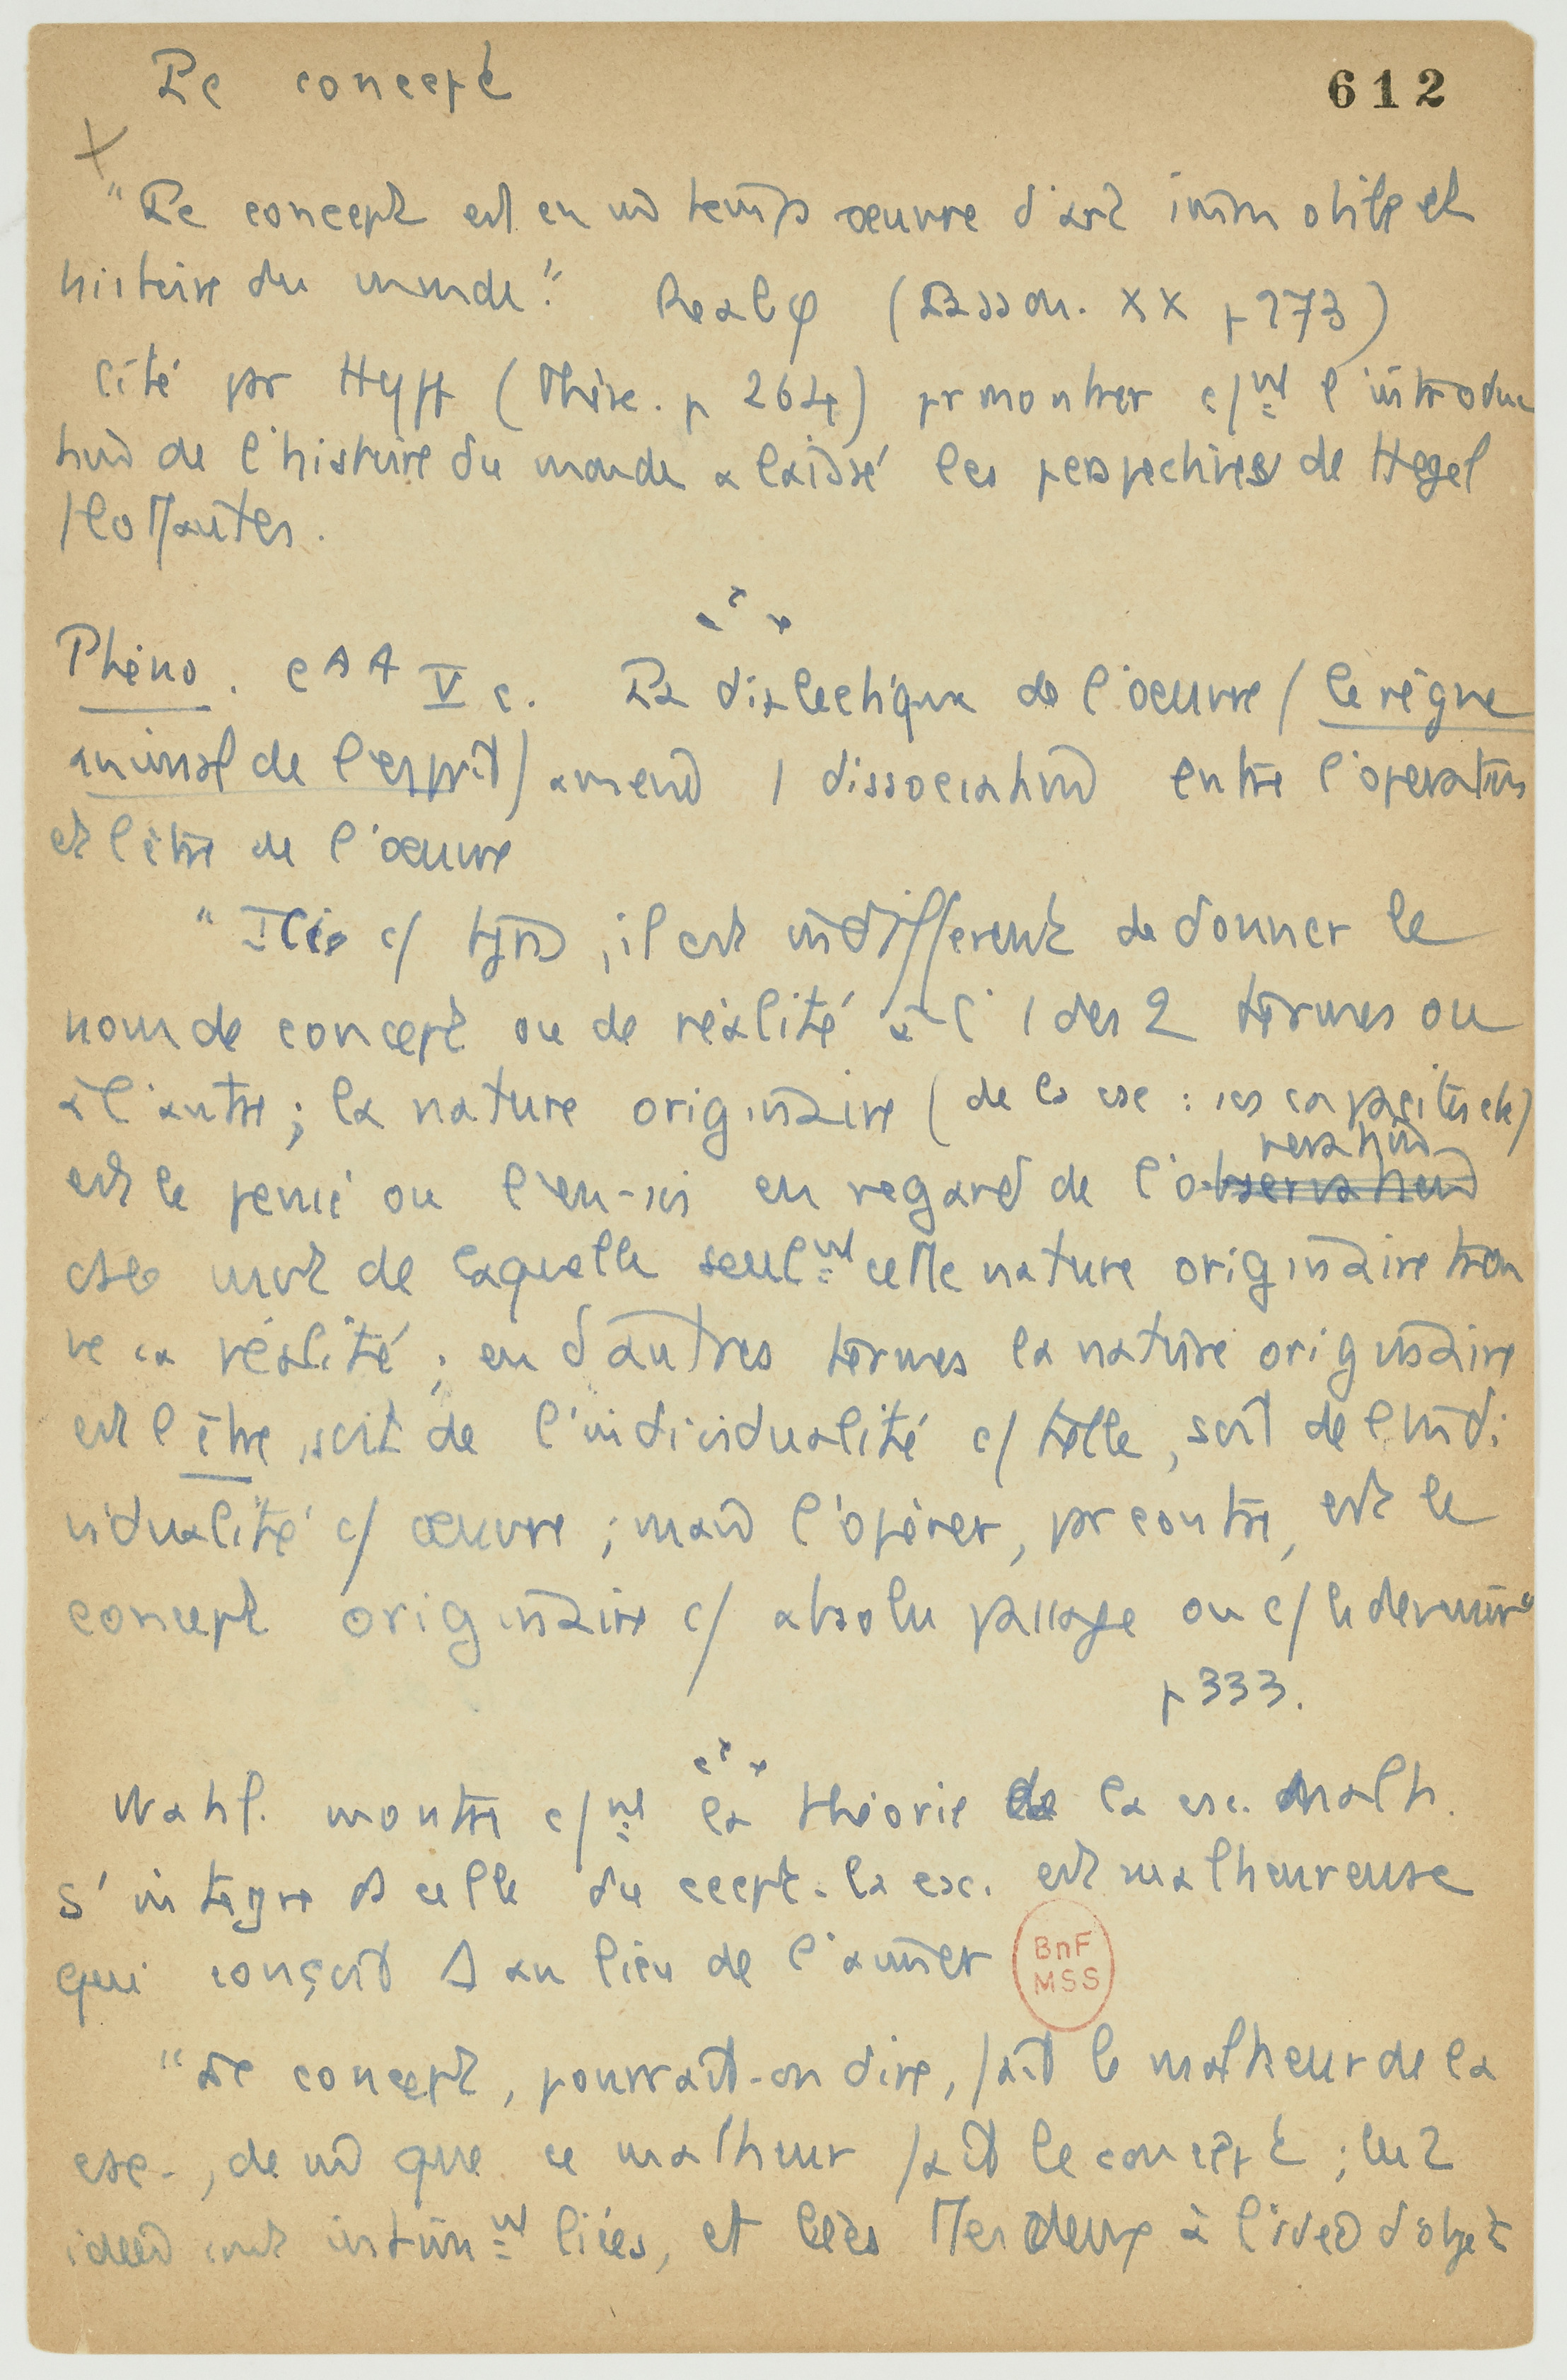 Le concept
612
"Le concept est en m̂ temps œuvre d'art immobile et
histoire du monde". Realφ (Lasson. XX p 273)
cité par Hypp (Thèse. p 264) pr montrer c/nt l'introduc
tion de l'histoire du monde a laissé les perspectives de Hegel
flottantes.
Phéno. CAA V c. La dialectique de l'œuvre (le règne
animal de l'esprit) amène / dissociation entre l'opération
et l'être de l'œuvre
" Ici c/ tjrs, il est indifférent de donner le
nom de concept ou de réalité à l'/ des 2 termes ou
à l'autre ; la nature originaire (de la csc : ses capacités etc)
est le pensé ou l'en-soi en regard de l'observation
ration
au moyen de laquelle seult cette nature originaire trou
ve sa réalité ; en d'autres termes la nature originaire
est l'être, soit de l'individualité c/ telle, soit de l'indi
vidualité c/ œuvre ; mais l'opérer, par contre, est le
concept originaire c/ absolu passage ou c/ le devenir"
p 333.
Wahl. montre c/nt la théorie de la csc. malh.
s'intègre ds celle du ccept. la csc. est malheureuse
qui conçoit Δ au lieu de l'aimer
BnF
MSS
"Le concept, pourrait-on dire, fait le malheur de la
csc-, de m̂ que ce malheur fait le concept ; les 2
idées sont intimnt liées, et liées ttes deux à l'idée d'objet